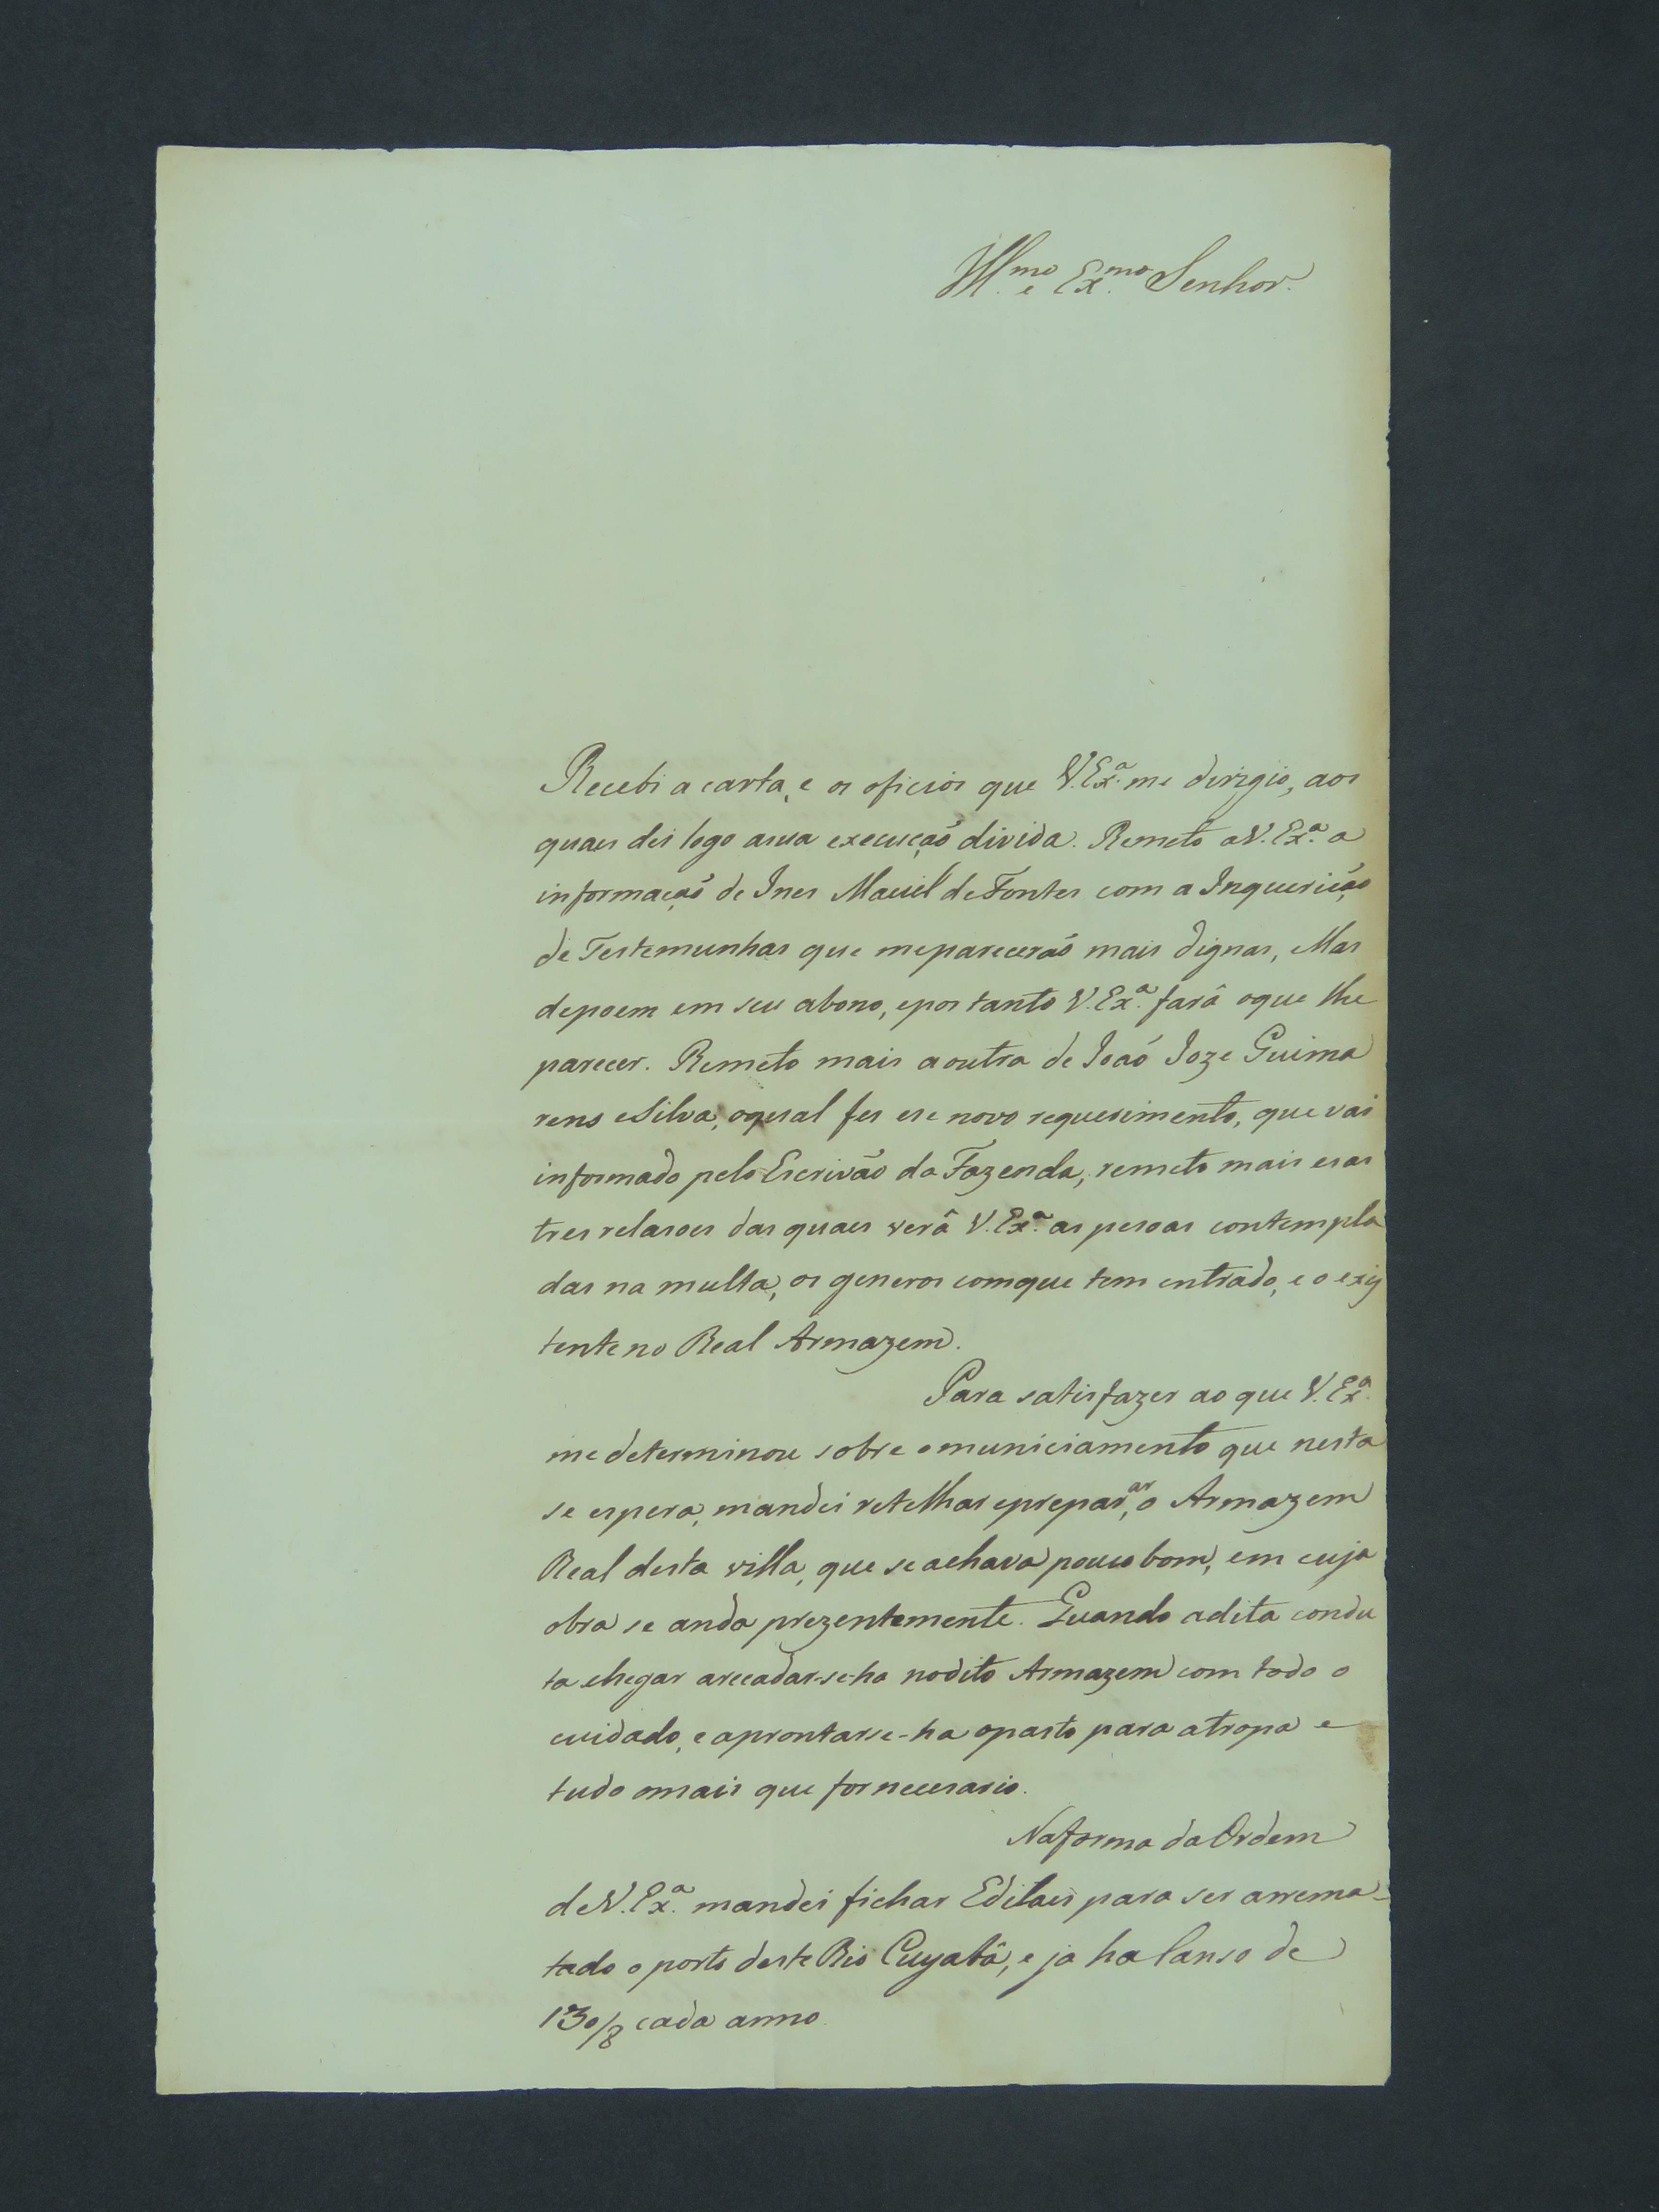 Ill.mo e Ex.mo Senhor.
Recebi a carta, e os oficios que V.Ex.a me dirigio, aos
quaes dei logo asua execuçaõ divida. Remeto aV.Ex.a a
informaçaõ de Ines Maciel de Fontes com a Inquerição
de Testemunhas que mepareceraõ mais dignas, Mas
depoem em seu abono, epor tanto V.Ex.a farâ oque lhe
parecer. Remeto mais a outra de Joaõ Joze Guima
rens eSilva, oqual fes ese novo requerimento, que vai
informado pelo Escrivão da Fazenda, remeto mais esas
tres relasoes das quaes verâ V.Ex.a as pesoas contempla
das na multa, os generos comque tem entrado, e o exis
tente no Real Armazem.
Para satisfazer ao que V.Ex.a
me determinou sobre omuniciamento que nesta
se espera, mandei retelhar eprepar,ar o Armazem
Real desta villa, que se achava pouco bom, em cuja
obra se anda prezentemente. Quando adita condu
ta chegar arecadar-se-ha nodito Armazem com todo o
cuidado, e aprontarse-ha opasto para atropa e
tudo omais que for necesario.
Naforma da Ordem
deV.Ex.a mandei fichar Editaes para ser arrema-
tado o porto deste Rio Cuyabâ, e ja ha lanso de
130/8 cada anno